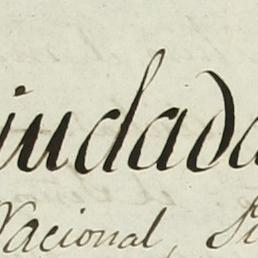 iudada
Nacional, Si